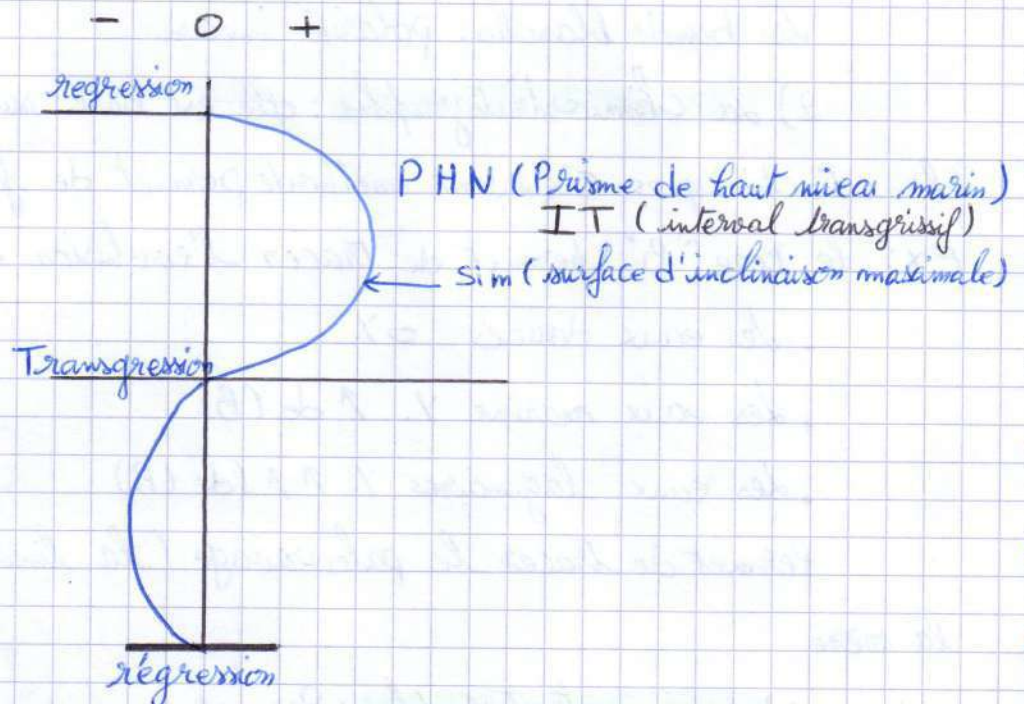 - O +
regression
PHN (Prisme de haut niveau marin)
IT (interval transgrissif)
Sim (surface d'inclinaison maximale)
Transgression
régression